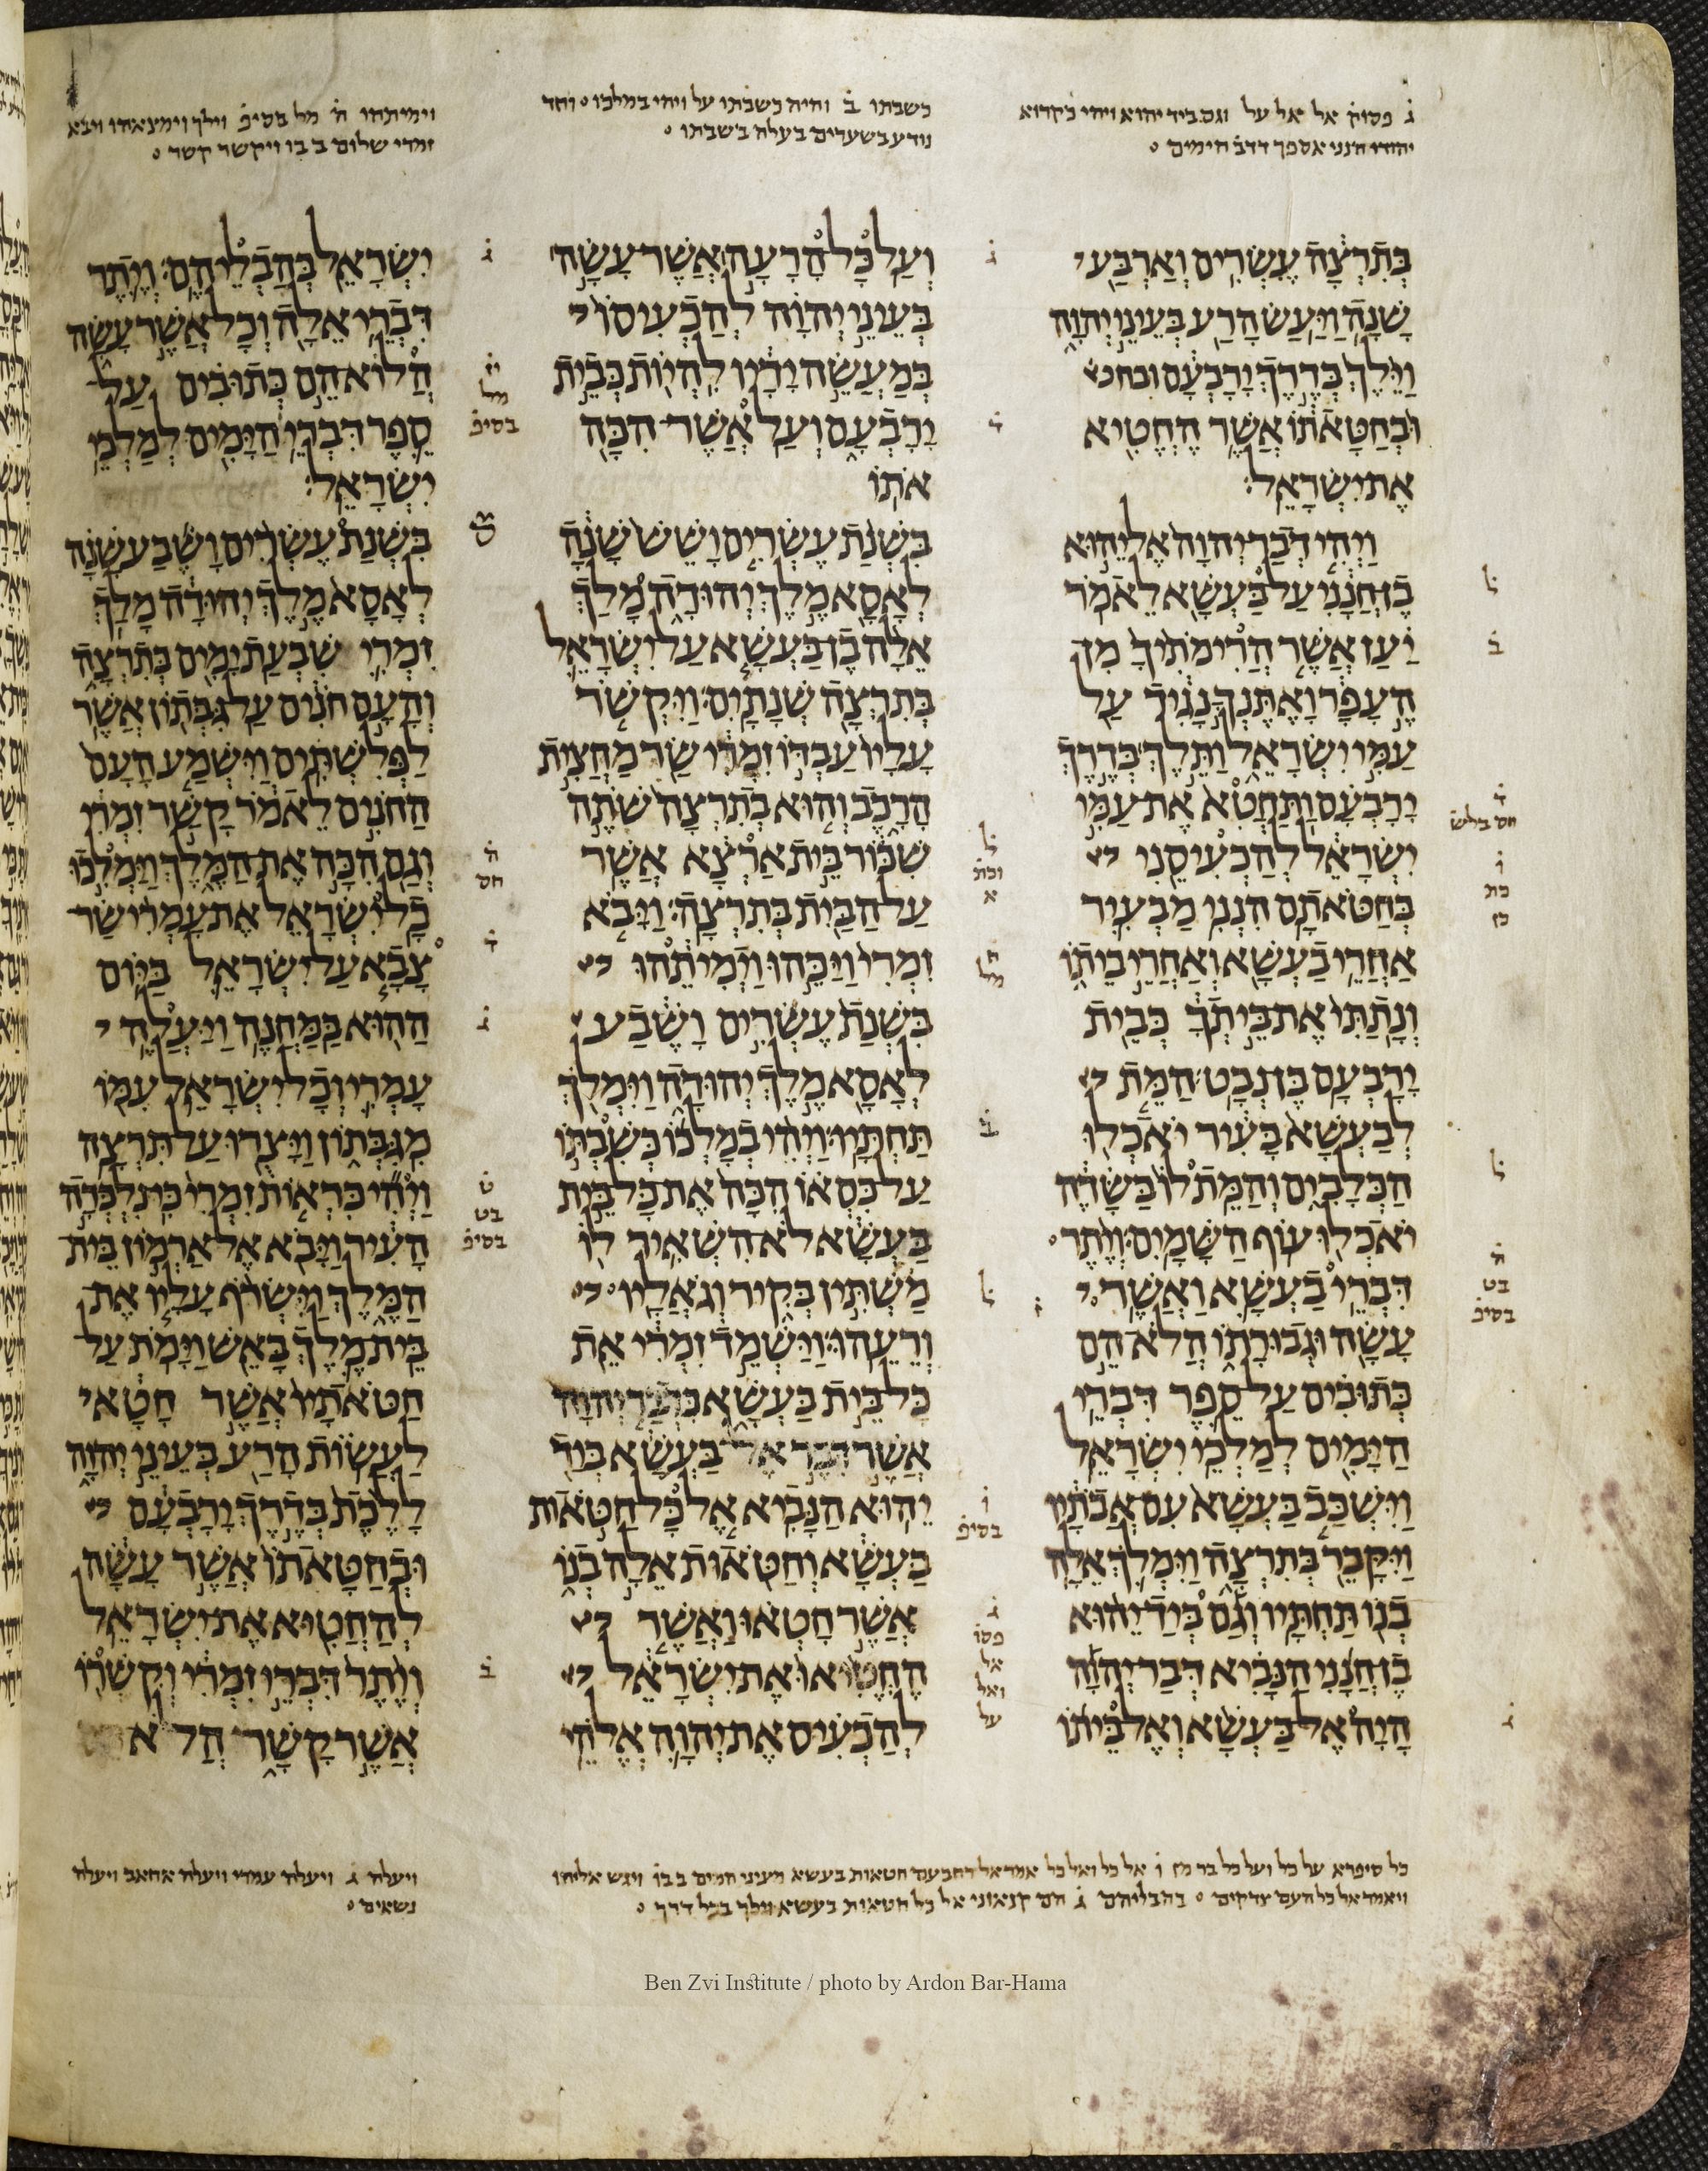 ג פסוק אל אל על וגם ביד יהוא ויהי כקרוא
יהודי הנני אספך דדב הימים
כשבתו ב והיה כשבתו על ויהי במלכו וחד
נודע בשערים בעלה בשבתו
וימיתהו ה מל בסיפ וילך וימצאהו ויבא
זמרי שלום ב בו ויקשר קשר
בְּתִרְצָה עֶשְׂרִים וְאַרְבַּע
שָׁנָה׃ וַיַּעַשׂ הָרַע בְּעֵינֵי יְהוָה
וַיֵּלֶךְ בְּדֶרֶךְ יָרָבְעָם ובח
וּבְחַטָּאתוֹ אֲשֶׁר הֶחֱטִיא
אֶת יִשְׂרָאֵל׃
וַיְהִי דְבַר יְהוָה אֶל יֵהוּא
בֶן חֲנָנִי עַל בַּעְשָׁא לֵאמֹר׃
יַעַן אֲשֶׁר הֲרִימֹתִיךָ מִן
הֶעָפָר וָאֶתֶּנְךָ נָגִיד עַל
עַמִּי יִשְׂרָאֵל וַתֵּלֶךְ בְּדֶרֶךְ
יָרָבְעָם וַתַּחֲטִא אֶת עַמִּי
יִשְׂרָאֵל לְהַכְעִיסֵנִי
בְּחַטֹּאתָם׃ הִנְנִי מַבְעִיר
אַחֲרֵי בַעְשָׁא וְאַחֲרֵי בֵיתוֹ
וְנָתַתִּי אֶת בֵּיתְךָ כְּבֵית
יָרָבְעָם בֶּן נְבָט׃ הַמֵּת
לְבַעְשָׁא בָּעִיר יֹאכְלוּ
הַכְּלָבִים וְהַמֵּת לוֹ בַּשָּׂדֶה
יֹאכְלוּ עוֹף הַשָּׁמָיִם׃ וְיֶתֶר
דִּבְרֵי בַעְשָׁא וַאֲשֶׁר
עָשָׂה וּגְבוּרָתוֹ הֲלֹא הֵם
כְּתוּבִים עַל סֵפֶר דִּבְרֵי
הַיָּמִים לְמַלְכֵי יִשְׂרָאֵל׃
וַיִּשְׁכַּב בַּעְשָׁא עִם אֲבֹתָיו
וַיִּקָּבֵר בְּתִרְצָה וַיִּמְלֹךְ אֵלָה
בְנוֹ תַּחְתָּיו׃ וְגַם בְּיַד יֵהוּא
בֶן חֲנָנִי הַנָּבִיא דְּבַר יְהוָה
הָיָה אֶל בַּעְשָׁא וְאֶל בֵּיתוֹ
וְעַל כָּל הָרָעָה אֲשֶׁר עָשָׂה
בְּעֵינֵי יְהוָה לְהַכְעִיסוֹ
בְּמַעֲשֵׂה יָדָיו לִהְיוֹת כְּבֵית
יָרָבְעָם וְעַל אֲשֶׁר הִכָּה
אֹתוֹ׃
בִּשְׁנַת עֶשְׂרִים וָשֵׁשׁ שָׁנָה
לְאָסָא מֶלֶךְ יְהוּדָה מָלַךְ
אֵלָה בֶן בַּעְשָׁא עַל יִשְׂרָאֵל
בְּתִרְצָה שְׁנָתָיִם׃ וַיִּקְשֹׁר
עָלָיו עַבְדּוֹ זִמְרִי שַׂר מַחֲצִית
הָרָכֶב וְהוּא בְתִרְצָה שֹׁתֶה
שִׁכּוֹר בֵּית אַרְצָא אֲשֶׁר
עַל הַבַּיִת בְּתִרְצָה׃ וַיָּבֹא
זִמְרִי וַיַּכֵּהוּ וַיְמִיתֵהוּ
בִּשְׁנַת עֶשְׂרִים וָשֶׁבַע
לְאָסָא מֶלֶךְ יְהוּדָה וַיִּמְלֹךְ
תַּחְתָּיו׃ וַיְהִי בְמָלְכוֹ כְּשִׁבְתּוֹ
עַל כִּסְאוֹ הִכָּה אֶת כָּל בֵּית
בַּעְשָׁא לֹא הִשְׁאִיר לוֹ
מַשְׁתִּין בְּקִיר וְגֹאֲלָיו
וְרֵעֵהוּ׃ וַיַּשְׁמֵד זִמְרִי אֵת
כָּל בֵּית בַּעְשָׁא כִּדְבַר יְהוָה
אֲשֶׁר דִּבֶּר אֶל בַּעְשָׁא בְּיַד
יֵהוּא הַנָּבִיא׃ אֶל כָּל חַטֹּאות
בַּעְשָׁא וְחַטֹּאות אֵלָה בְנוֹ
אֲשֶׁר חָטְאוּ וַאֲשֶׁר
הֶחֱטִיאוּ אֶת יִשְׂרָאֵל
לְהַכְעִיס אֶת יְהוָה אֱלֹהֵי
יִשְׂרָאֵל בְּהַבְלֵיהֶם׃ וְיֶתֶר
דִּבְרֵי אֵלָה וְכָל אֲשֶׁר עָשָׂה
הֲלוֹא הֵם כְּתוּבִים עַל
סֵפֶר דִּבְרֵי הַיָּמִים לְמַלְכֵי
יִשְׂרָאֵל׃
בִּשְׁנַת עֶשְׂרִים וָשֶׁבַע שָׁנָה
לְאָסָא מֶלֶךְ יְהוּדָה מָלַךְ
זִמְרִי שִׁבְעַת יָמִים בְּתִרְצָה
וְהָעָם חֹנִים עַל גִּבְּתוֹן אֲשֶׁר
לַפְּלִשְׁתִּים׃ וַיִּשְׁמַע הָעָם
הַחֹנִים לֵאמֹר קָשַׁר זִמְרִי
וְגַם הִכָּה אֶת הַמֶּלֶךְ וַיַּמְלִכוּ
כָל יִשְׂרָאֵל אֶת עָמְרִי שַׂר
צָבָא עַל יִשְׂרָאֵל בַּיּוֹם
הַהוּא בַּמַּחֲנֶה׃ וַיַּעֲלֶה
עָמְרִי וְכָל יִשְׂרָאֵל עִמּוֹ
מִגִּבְּתוֹן וַיָּצֻרוּ עַל תִּרְצָה׃
וַיְהִי כִּרְאוֹת זִמְרִי כִּי נִלְכְּדָה
הָעִיר וַיָּבֹא אֶל אַרְמוֹן בֵּית
הַמֶּלֶךְ וַיִּשְׂרֹף עָלָיו אֶת
בֵּית מֶלֶךְ בָּאֵשׁ וַיָּמֹת׃ עַל
חַטֹּאתָיו אֲשֶׁר חָטָא
לַעֲשׂוֹת הָרַע בְּעֵינֵי יְהוָה
לָלֶכֶת בְּדֶרֶךְ יָרָבְעָם
וּבְחַטָּאתוֹ אֲשֶׁר עָשָׂה
לְהַחֲטִיא אֶת יִשְׂרָאֵל׃
וְיֶתֶר דִּבְרֵי זִמְרִי וְקִשְׁרוֹ
אֲשֶׁר קָשָׁר הֲלֹא
כל סיפרא על כל ועל כל בר מן ו אל כל ואל כל אמר אל רחבעם חטאות בעשא מעיני חמים ב בו ויגש אליהו
ויאמר אל כל העם צדקים בהבליהם ג הם קנאוני אל כל חטאות בעשא וילך בכל דרך
ויעלה ג ויעלה עמרי ויעלה אחאב ויעלה
נשאים
Ben Zvi Institute / photo by Ardon Bar-Hama